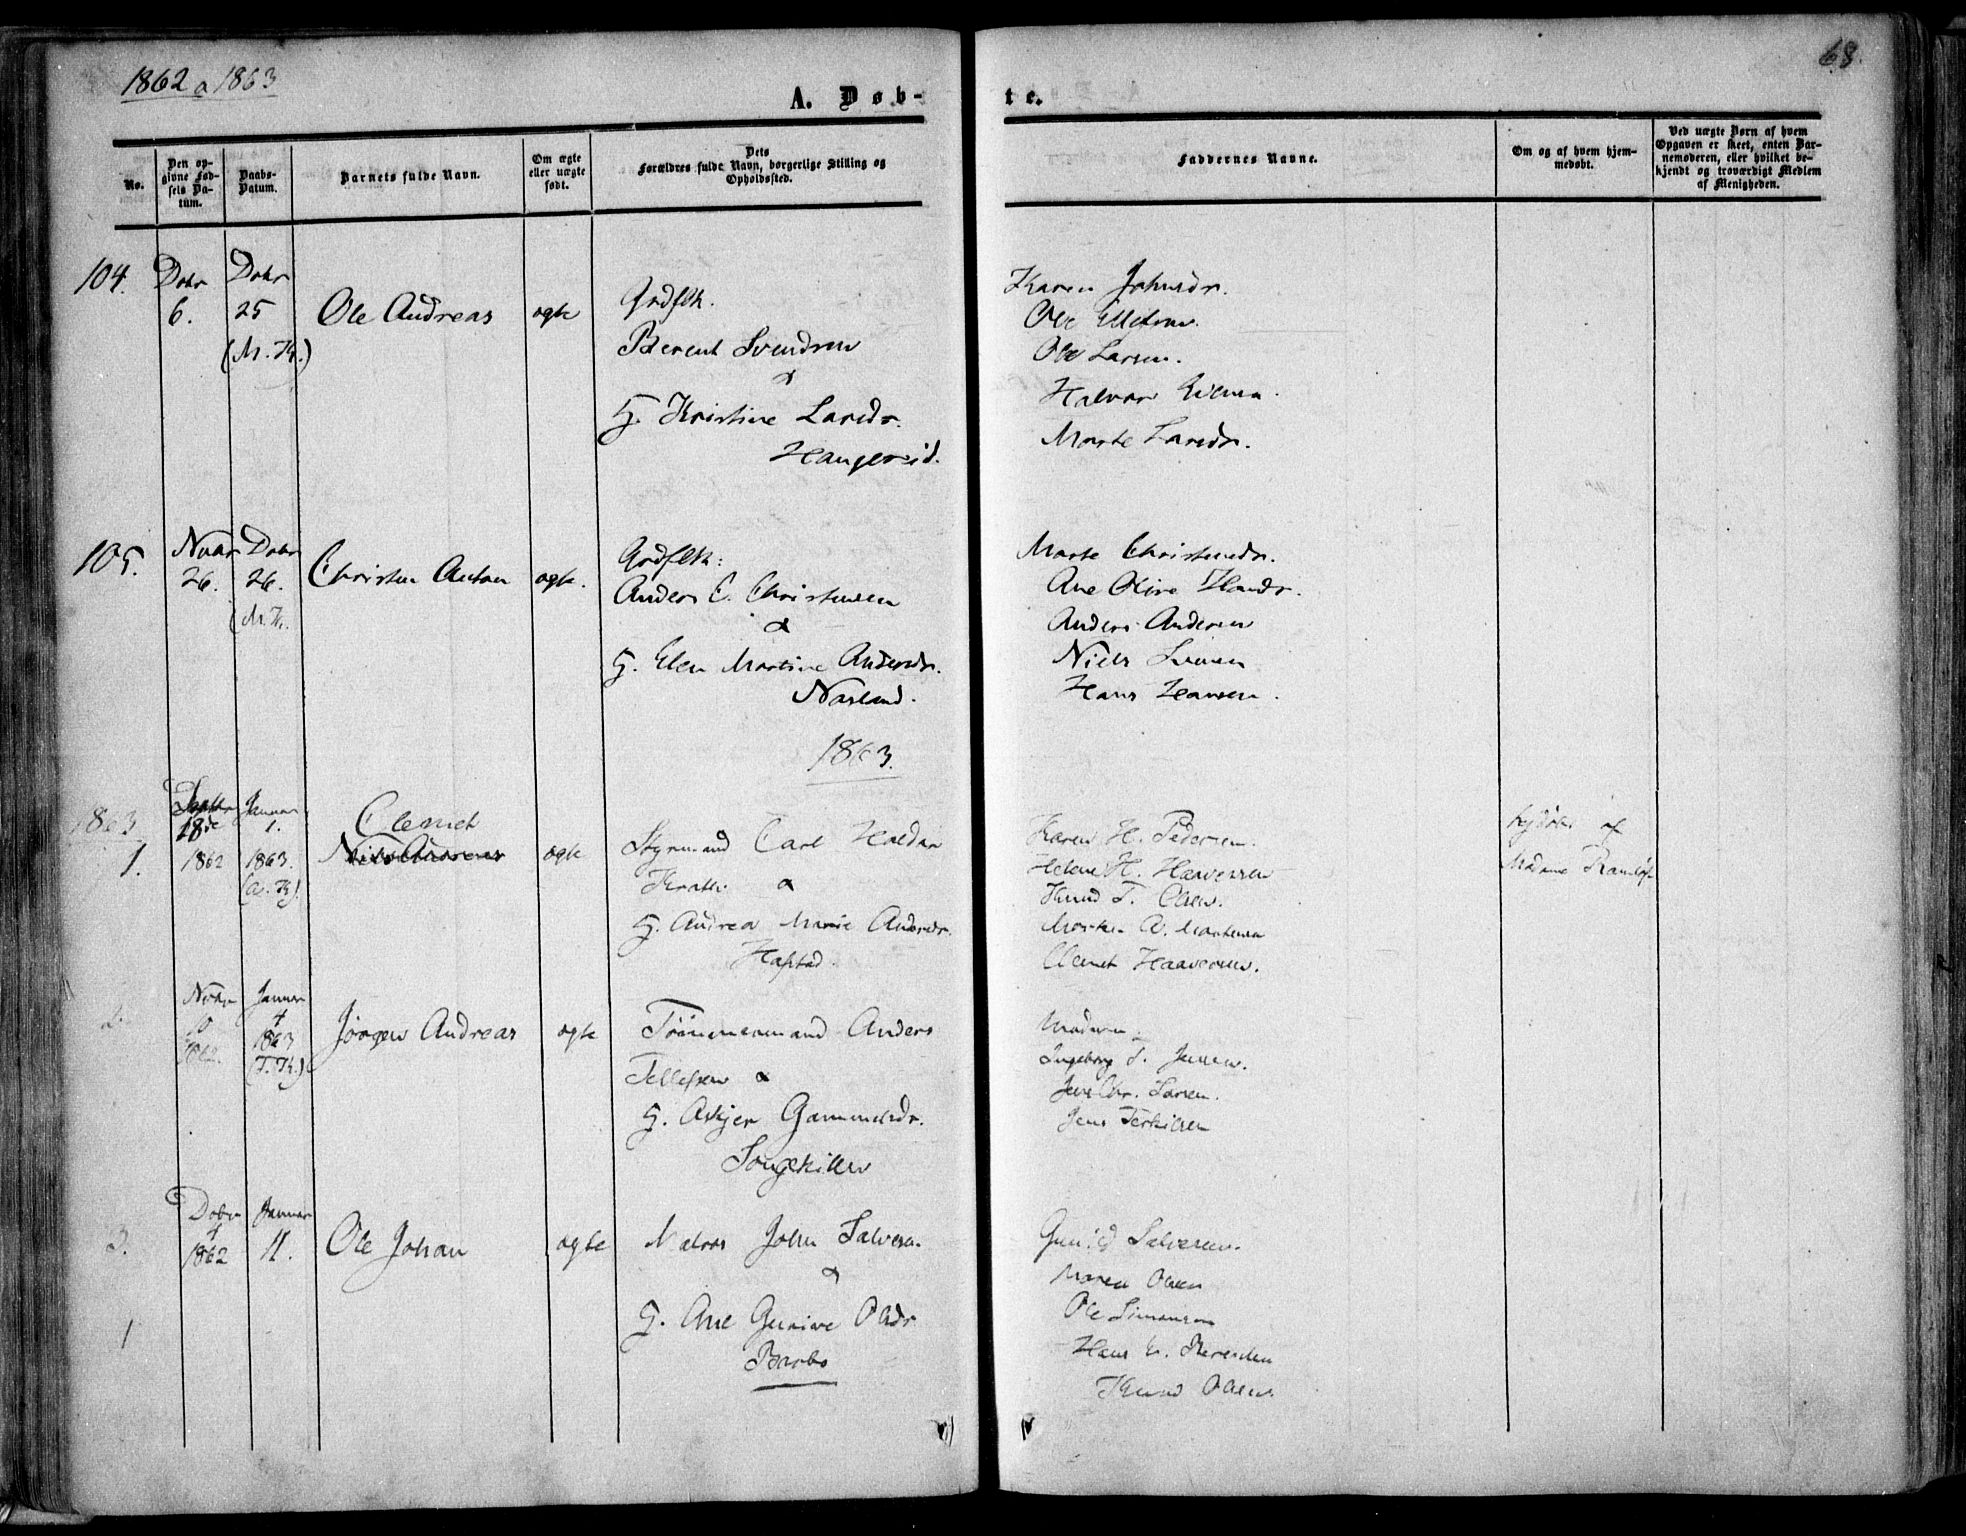 1862 a 1863
68.
A. Døb-
te.
No.
Den op-
givne Fød-
sels Da-
tum.
Daabs-
Datum.
Barnets fulde Navn.
Om ægte
eller uægte
født.
Dets
Forældres fulde Navn, borgerlige Stilling og
Opholdssted.
Faddernes Navne.
Om og af hvem hjem-
medøbt.
Ved uægte Børn af hvem
Opgaven er skeet, enten Bar-
nemoderen, eller hvilket be-
kjendt og troværdigt Medlem
af Menigheden.
104.
Dcbr
6.
Dcbr
25
(M. K.)
Ole Andreas
ægte
Grdflk.
Berent Svendsen
&
H. Kristine Larsdr.
Karen Johnsdr.
Ole Ellefsen.
Ole Larsen.
Halvor
Marte Larsdr.
105.
Novbr
26.
Dcbr
26.
(M. K.
Christen Anton
ægte.
Grdflk:
Anders C. Christensen
&
H. Elen Martine Andersdr.
Narland.
Marte Christensdr.
Ane Oline Hansdr.
Anders Andersen
Niels
Hans Hansen.
1863.
1863
1.
18de
1862
Januar
1.
1863.
(A. K.)
Clemet
Niels Andreas
ægte
Styrmand Carl Haldan
&
H. Andrea Marie Andersdr.
Hafstad.
Karen H. Pedersen.
Helene H. Haavorsen
Knud T. Olsen.
Morten A. Mortensen
Clemet Haavorsen.
hjdøbt af
Madame
2.
Novbr
1862.
Januar
4
1863
(T. K.)
Jørgen Andreas
ægte
Tømmermand Anders
Tellefsen &
H. Askjer Gammelsdr.
Songekilen
Moderen
Ingeborg T. Jensen.
Jens Chr. Larsen.
Jens Terkilsen
3.
Dcbr
4
1862
Januar
11.
Ole Johan
ægte
Matros John Salvesen.
&
H. Ane Gurine Olsdr
Barbo
Gunild Salvesen.
Maren Olsen
Ole Simonsen
Hans
Knud Olsen.
1